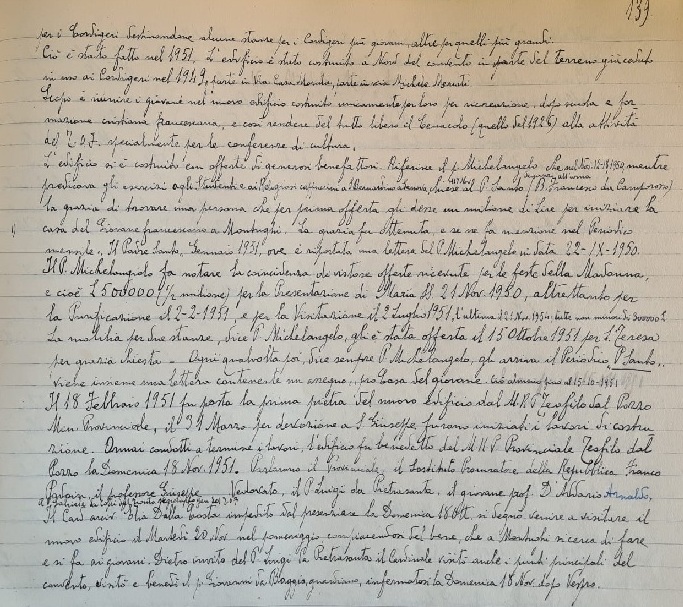 139
per i Cordigeri destinandone alcune stanze per i Cordigeri più giovani, altre per quelli più grandi.
Ciò è stato fatto nel 1951. L'edificio è stato costruito a Nord del convento in parte del terreno già ceduto
in uso ai Cordigeri nel 1949, parte in Via Michele
Scopo è riunire i giovani nel nuovo edificio costruito unicamente per loro per ricreazione, dopo scuola e for-
mazione cristiana francescana, e così rendere del tutto libero il Cenacolo (quello del 1926) alla attività
del T.O.F. specialmente per le conferenze di cultura.
L'edificio si è costruito con offerte di generosi benefattori. Riferisce il p. Michelangelo che nel 1950, mentre
predicava gli esercizi agli Studenti e ai Religiosi chiese al P. Santo (B. Francesco da Camporosso)
la grazia di trovare una persona che per prima offerta gli desse un milione di Lire per iniziare la
casa del Giovane francescano a Montughi. La grazia fu ottenuta, e se ne fa menzione nel Periodico
mensile, Il Padre Santo, Gennaio 1951, ove è riportata una lettera del P. Michelangelo in data 22-IX-1950.
Il P. Michelangelo fa notare la coincidenza di vistose offerte ricevute per le feste della Madonna,
e cioè £ 500000 (1/2 milione) per la Presentazione di Maria SS 21 Nov. 1950, altrettanto per
la Purificazione il 2-2-1951, e per la Visitazione il 2 Luglio 1951, l'ultima il 21 Nov. 1954; tutte non minori di 300000 £.
La mobilia per due stanze, dice P. Michelangelo, gli è stata offerta il 15 Ottobre 1951 per S. Teresa
per grazia chiesta. - Ogni qualvolta poi, dice sempre P. Michelangelo, gli arriva il Periodico P. Santo,
viene insieme una lettera contenente un assegno, pro Casa del giovane. Ciò almeno fino al 15-10-1951
Il 18 Febbraio 1951 fu posta la prima pietra del nuovo edificio dal M.R.P. Teofilo dal Pozzo
Min. Provinciale, il 31 Marzo per devozione a S. Giuseppe furono iniziati i lavori di costru
zione. Ormai condotti a termine i lavori, l'edificio fu benedetto dal M.R.P. Provinciale Teofilo dal
Pozzo la Domenica 18 Nov. 1951. Visitarono il Provinciale, il Sostituto Procuratore della Repubblica Franco
il professore Giuseppe il P. Luigi da Pietrasanta, il giovane prof. D'Addario Arnaldo.
Il Card. arciv. Elia Dalla Costa impedito dal presenziare la Domenica 18 si degnò venire a visitare il
nuovo edificio il Martedì 20 Nov. nel pomeriggio compiacendosi del bene, che a Montughi si cerca di fare
e si fa ai giovani. Dietro invito del P. Luigi da Pietrasanta il Cardinale visitò anche i punti principali del
convento, visitò e benedì il p. Giovanni da Baggio, guardiano, infermatosi la Domenica 18 Nov. dopo Vespro.